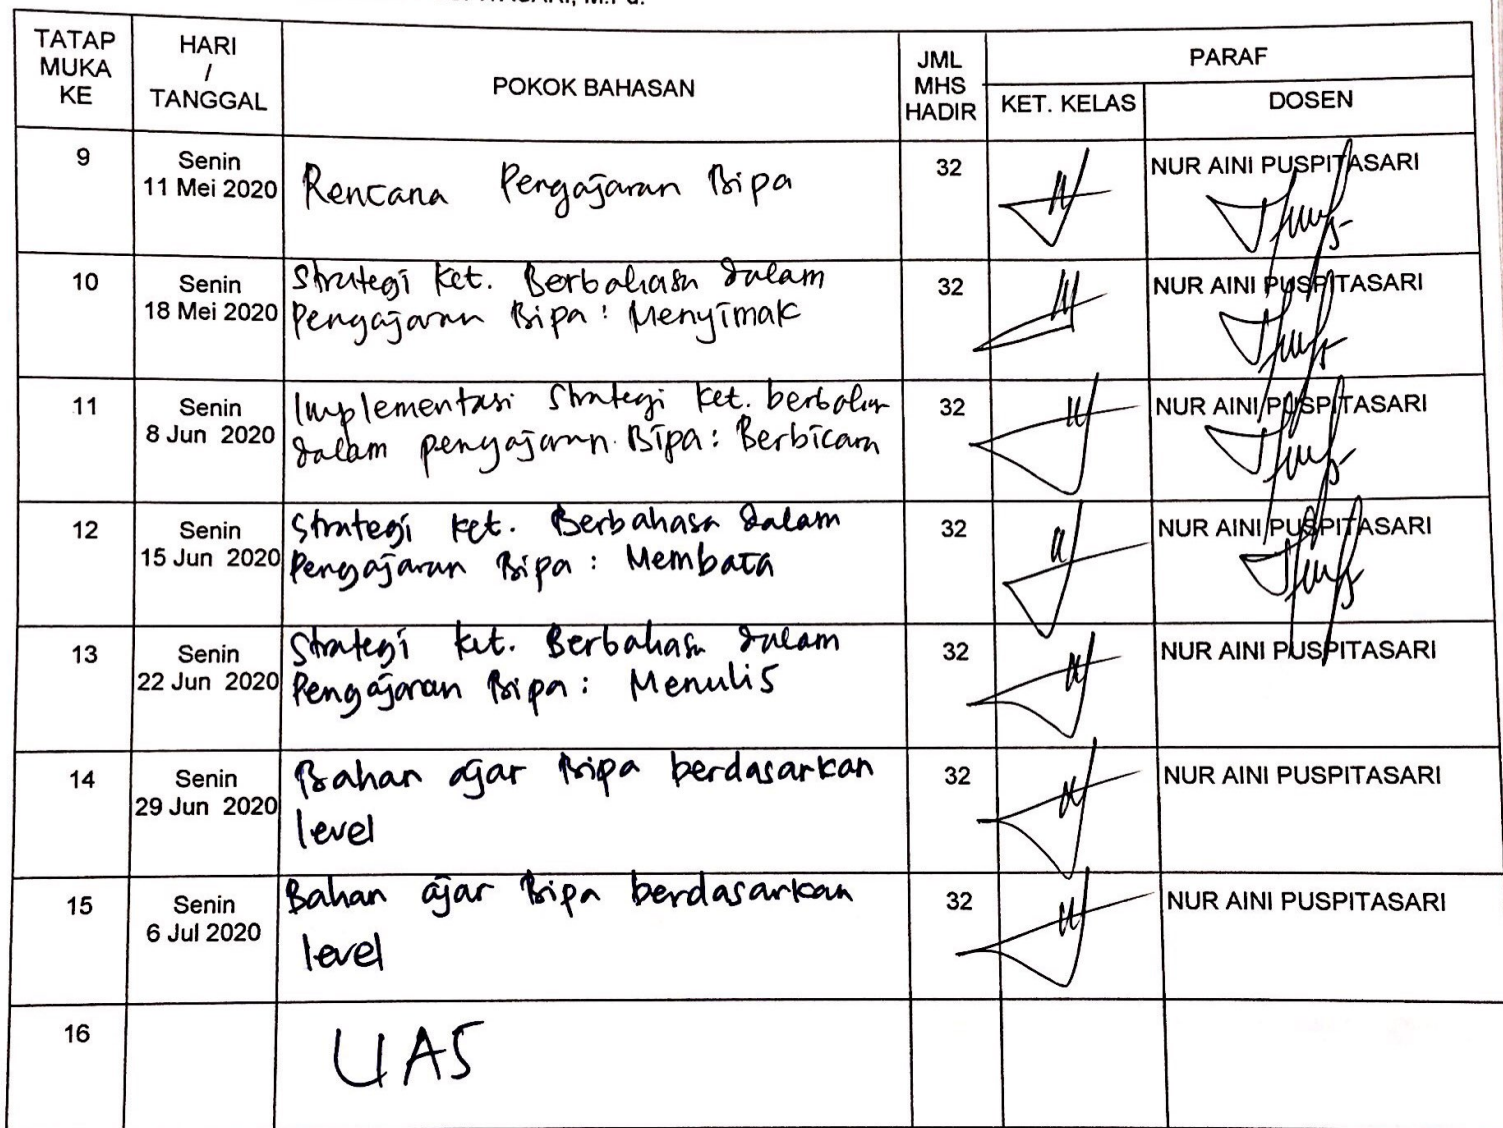 TASARI, M.Pd.
TATAP MUKA KE
HARI / TANGGAL
POKOK BAHASAN
JML MHS HADIR
PARAF
KET. KELAS
DOSEN
9
Senin
11 Mei 2020
Rencana Pengajaran Bipa
32
NUR AINI PUSPITASARI
10
Senin
18 Mei 2020
Strategi ket. Berbahasa dalam
Pengajaran Bipa : Menyimak
32
NUR AINI PUSPITASARI
11
Senin
8 Jun 2020
Implementasi Strategi ket. berbahasa
dalam pengajaran Bipa : Berbicara
32
NUR AINI PUSPITASARI
12
Senin
15 Jun 2020
Strategi ket. Berbahasa dalam
Pengajaran Bipa : Membaca
32
NUR AINI PUSPITASARI
13
Senin
22 Jun 2020
Strategi ket. Berbahasa dalam
Pengajaran Bipa : Menulis
32
NUR AINI PUSPITASARI
14
Senin
29 Jun 2020
Bahan ajar Bipa berdasarkan
level
32
NUR AINI PUSPITASARI
15
Senin
6 Jul 2020
Bahan ajar Bipa berdasarkan
level
32
NUR AINI PUSPITASARI
16
UAS